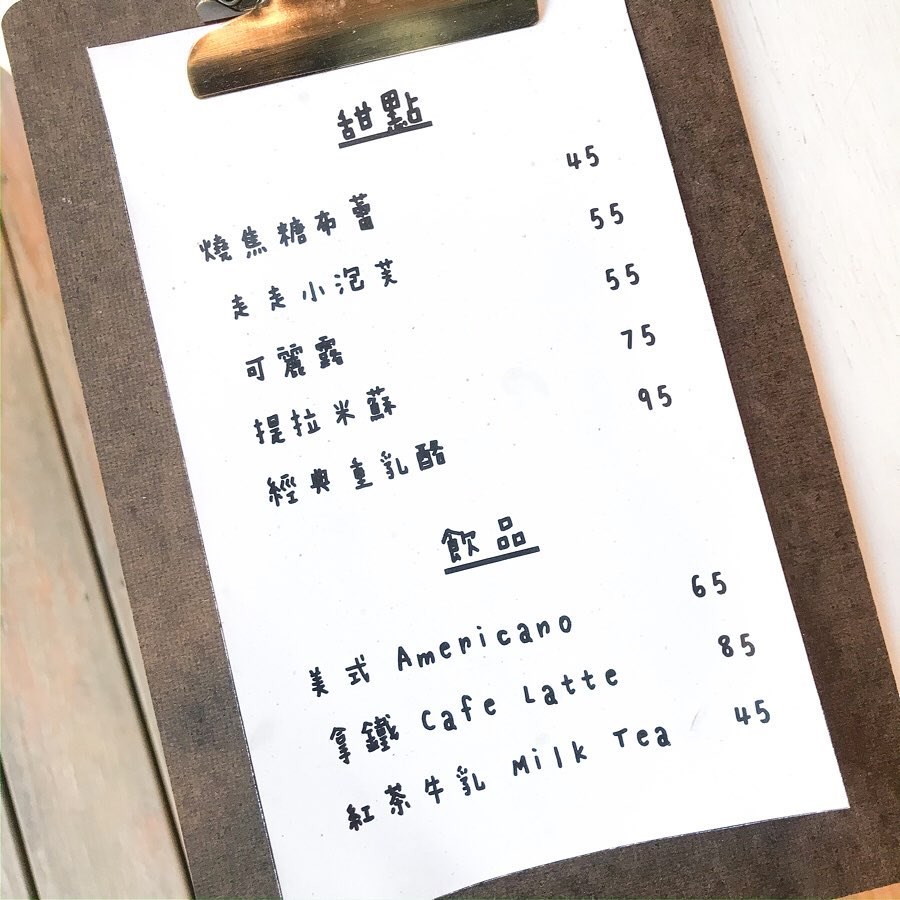 甜點
燒焦糖布蕾 45
走走小泡芙 55
可麗露 55
提拉米蘇 75
經典重乳酪 95
飲品
美式 Americano 65
拿鐵 Cafe Latte 85
紅茶牛乳 Milk Tea 45